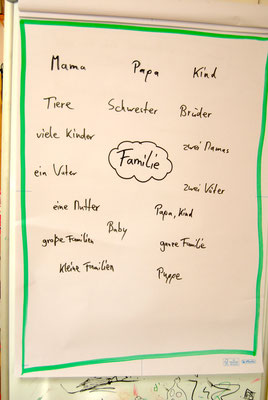 Mama Papa Kind
Tiere Schwester Brüder
viele Kinder
zwei Mamas
Familie
ein Vater
zwei Väter
eine Mutter
Papa, Kind
Baby
große Familien
ganze Familie
kleine Familien
Puppe